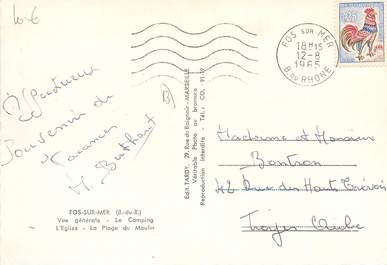 10 €
FOS SUR MER
18H15
12-8
1965
B. DU RHONE
0,25
Affectueux
Souvenir de
Vacances
B)
Madame et Monsieur
Bontron
42 Rue des Hauts Trévois
Troyes Aube
Edit. TARDY, 29, Rue du Baignoir - MARSEILLE
Véritable Photo au bromure
Reproduction interdite - Tél. : CO. 91-19
FOS-SUR-MER (B.-du-R.)
Vue générale - Le Camping
L'Eglise - La Plage du Moulin